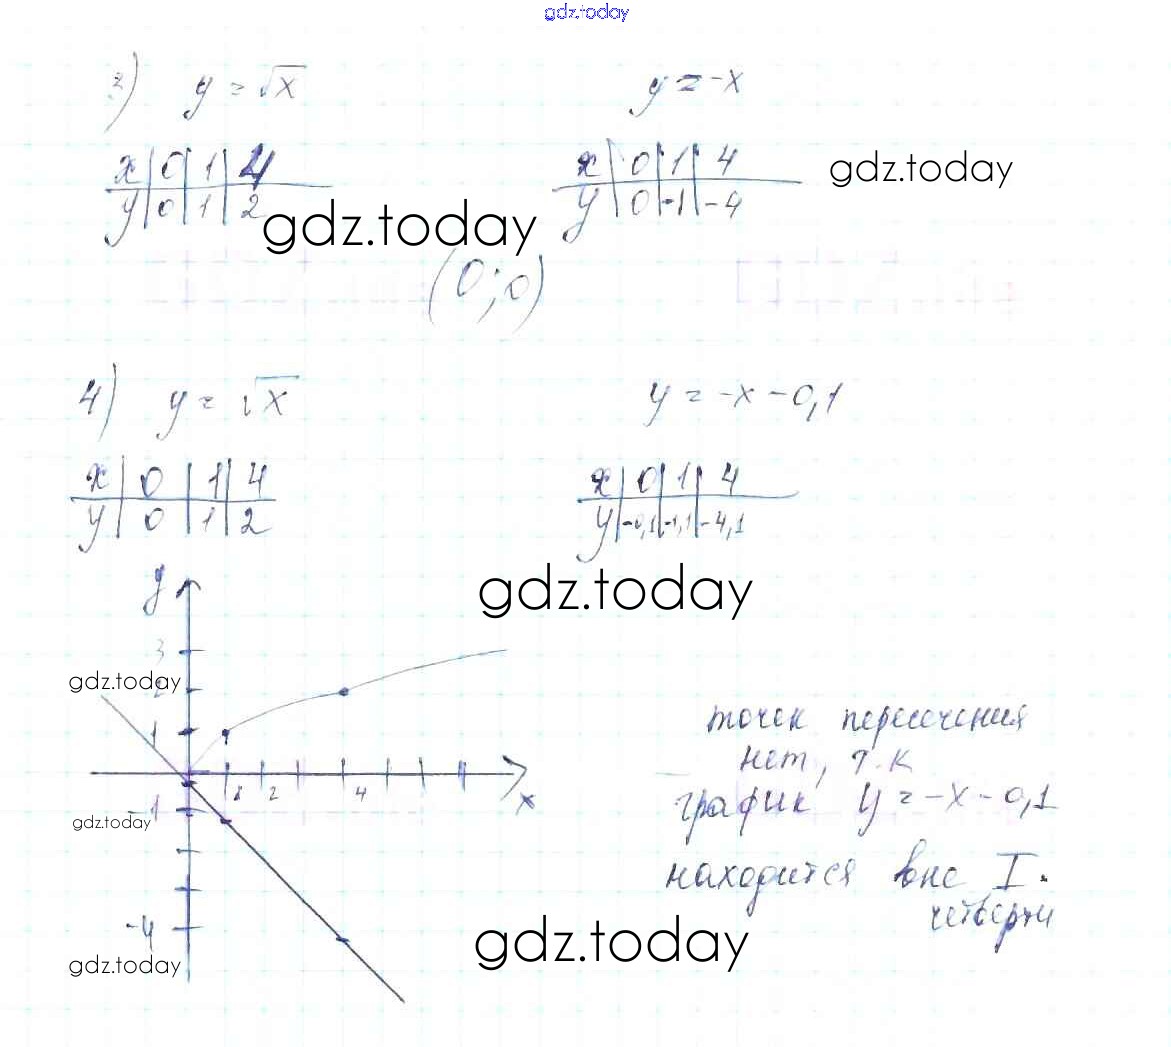 gdz.today
3) y = √x y = -x
x | 0 | 1 | 4 x | 0 | 1 | 4 gdz.today
y | 0 | 1 | 2 y | 0 | -1 | -4
gdz.today
(0; 0)
4) y = √x y = -x - 0,1
x | 0 | 1 | 4 x | 0 | 1 | 4
y | 0 | 1 | 2 y | -0,1 | -1,1 | -4,1
gdz.today
y
3
gdz.today
2
1
1 2 4 x
-1
gdz.today
-4
gdz.today
точек пересечения
нет, т.к
график y = -x - 0,1
находится вне I
четверти
gdz.today